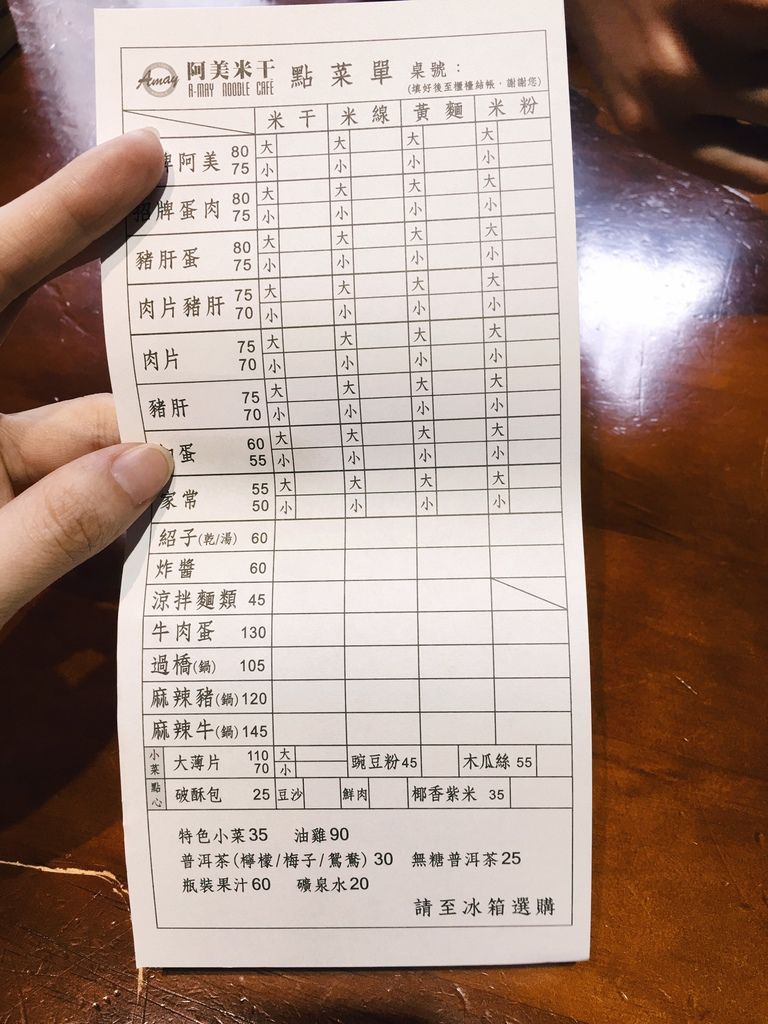 Amay 阿美米干 點菜單 桌號：
A-MAY NOODLE CAFE (填好後至櫃檯結帳，謝謝您)
米干 米線 黃麵 米粉
牌阿美 80 大 大 大 大
75 小 小 小 小
招牌蛋肉 80 大 大 大 大
75 小 小 小 小
豬肝蛋 80 大 大 大 大
75 小 小 小 小
肉片豬肝 75 大 大 大 大
70 小 小 小 小
肉片 75 大 大 大 大
70 小 小 小 小
豬肝 75 大 大 大 大
70 小 小 小 小
蛋 60 大 大 大 大
55 小 小 小 小
家常 55 大 大 大 大
50 小 小 小 小
紹子(乾/湯) 60
炸醬 60
涼拌麵類 45
牛肉蛋 130
過橋(鍋) 105
麻辣豬(鍋) 120
麻辣牛(鍋) 145
小菜 大薄片 110 大 豌豆粉 45 木瓜絲 55
70 小
點心 破酥包 25 豆沙 鮮肉 椰香紫米 35
特色小菜35 油雞90
普洱茶(檸檬/梅子/鴛鴦) 30 無糖普洱茶25
瓶裝果汁60 礦泉水20
請至冰箱選購